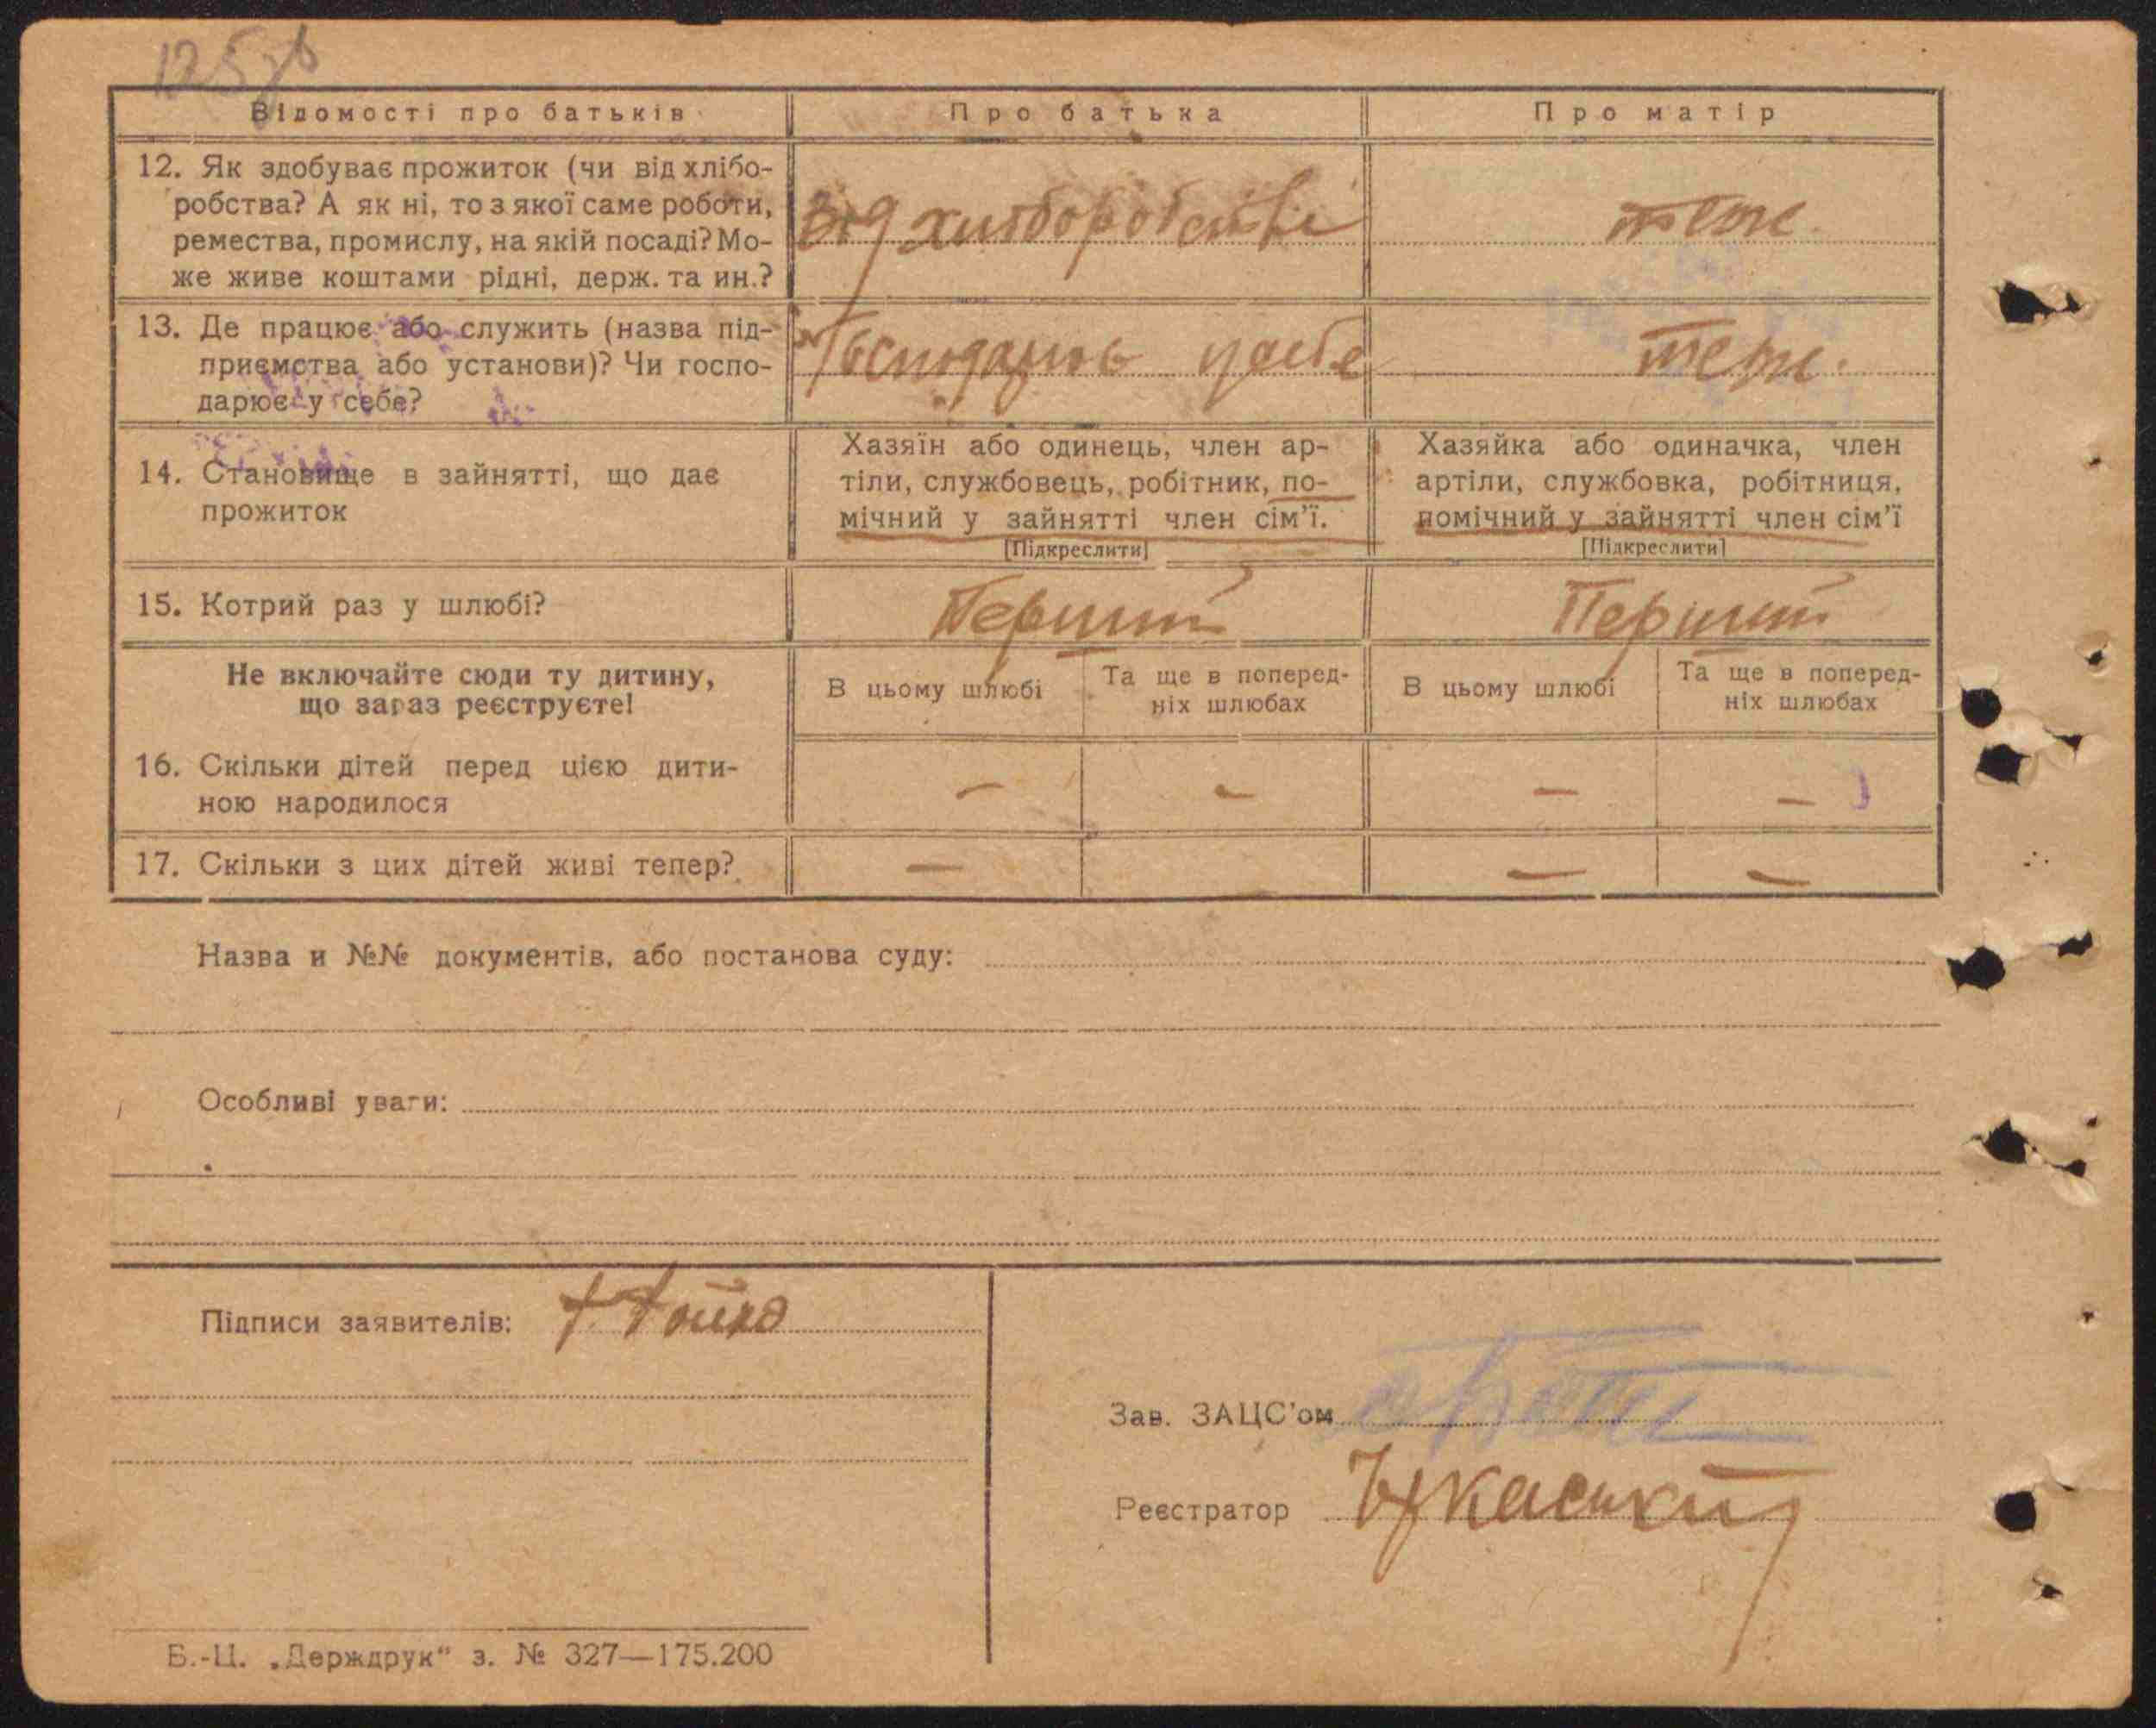 125 зв
Відомості про батьків
Про батька
Про матір
12. Як здобуває прожиток (чи від хлібо-
робства? А як ні, то з якої саме роботи,
ремества, промислу, на якій посаді? Мо-
же живе коштами рідні, держ. та ин.?
Від хліборобства
теж.
13. Де працює або служить (назва під-
приємства або установи)? Чи госпо-
дарює у себе?
Господарює у себе
теж.
14. Становище в зайнятті, що дає
прожиток
Хазяїн або одинець, член ар-
тіли, службовець, робітник, по-
мічний у зайнятті член сім'ї.
[Підкреслити]
Хазяйка або одиначка, член
артіли, службовка, робітниця,
помічний у зайнятті член сім'ї
[Підкреслити]
15. Котрий раз у шлюбі?
Перший
Перший
Не включайте сюди ту дитину,
що зараз реєструєте!
В цьому шлюбі
Та ще в поперед-
ніх шлюбах
В цьому шлюбі
Та ще в поперед-
ніх шлюбах
16. Скільки дітей перед цією дити-
ною народилося
— — — —
17. Скільки з цих дітей живі тепер?
— — —
Назва и №№ документів, або постанова суду:
Особливі уваги:
Підписи заявителів:
Зав. ЗАЦС'ом
Реєстратор
Б.-Ц. „Держдрук“ з. № 327—175.200